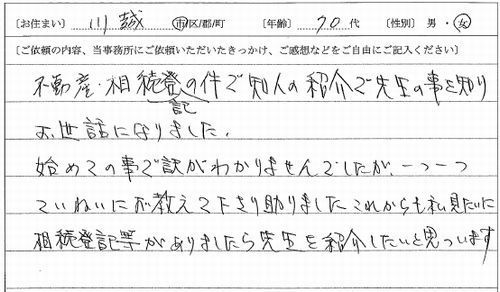 ［お住まい］ 川越 市/区/郡/町 ［年齢］ 70 代 ［性別］ 男・女
［ご依頼の内容、当事務所にご依頼いただいたきっかけ、ご感想などをご自由にご記入ください］
不動産・相続登記の件で知人の紹介で先生の事を知り
お世話になりました。
始めての事で訳がわかりませんでしたが、一つ一つ
ていねいにお教え下さり助りましたこれからも私見たいに
相続登記等がありましたら先生を紹介したいと思ついます